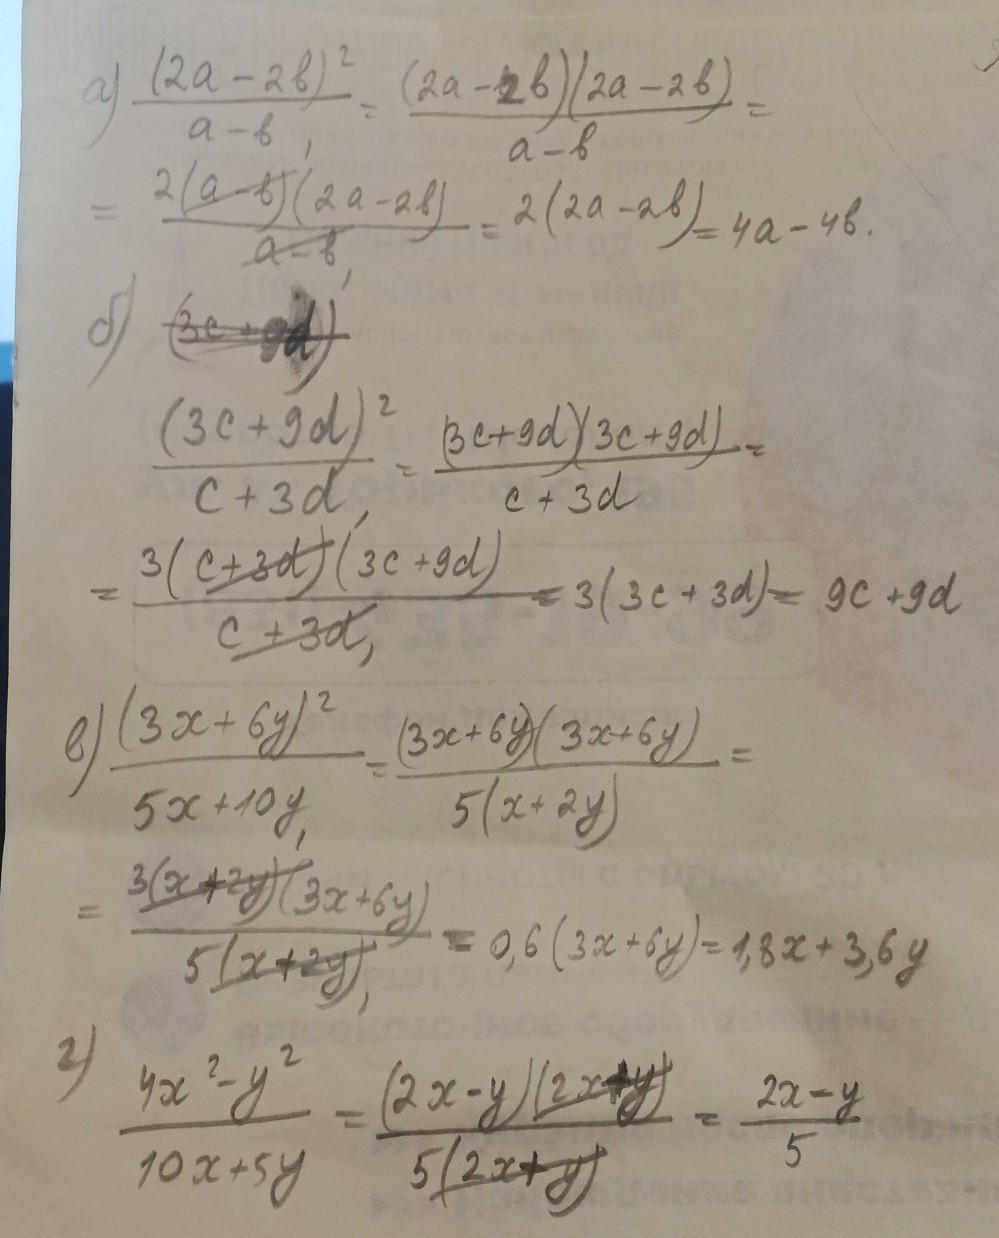 а) (2a - 2b)² / a - b, = (2a - 2b)(2a - 2b) / a - b =
= 2(a - b)(2a - 2b) / a - b, = 2(2a - 2b) = 4a - 4b.
б) (3c + 9d)
(3c + 9d)² / c + 3d, = (3c + 9d)(3c + 9d) / c + 3d =
= 3(c + 3d)(3c + 9d) / c + 3d, = 3(3c + 3d) = 9c + 9d
в) (3x + 6y)² / 5x + 10y, = (3x + 6y)(3x + 6y) / 5(x + 2y) =
= 3(x + 2y)(3x + 6y) / 5(x + 2y), = 0,6(3x + 6y) = 1,8x + 3,6y
г) 4x² - y² / 10x + 5y = (2x - y)(2x + y) / 5(2x + y) = 2x - y / 5